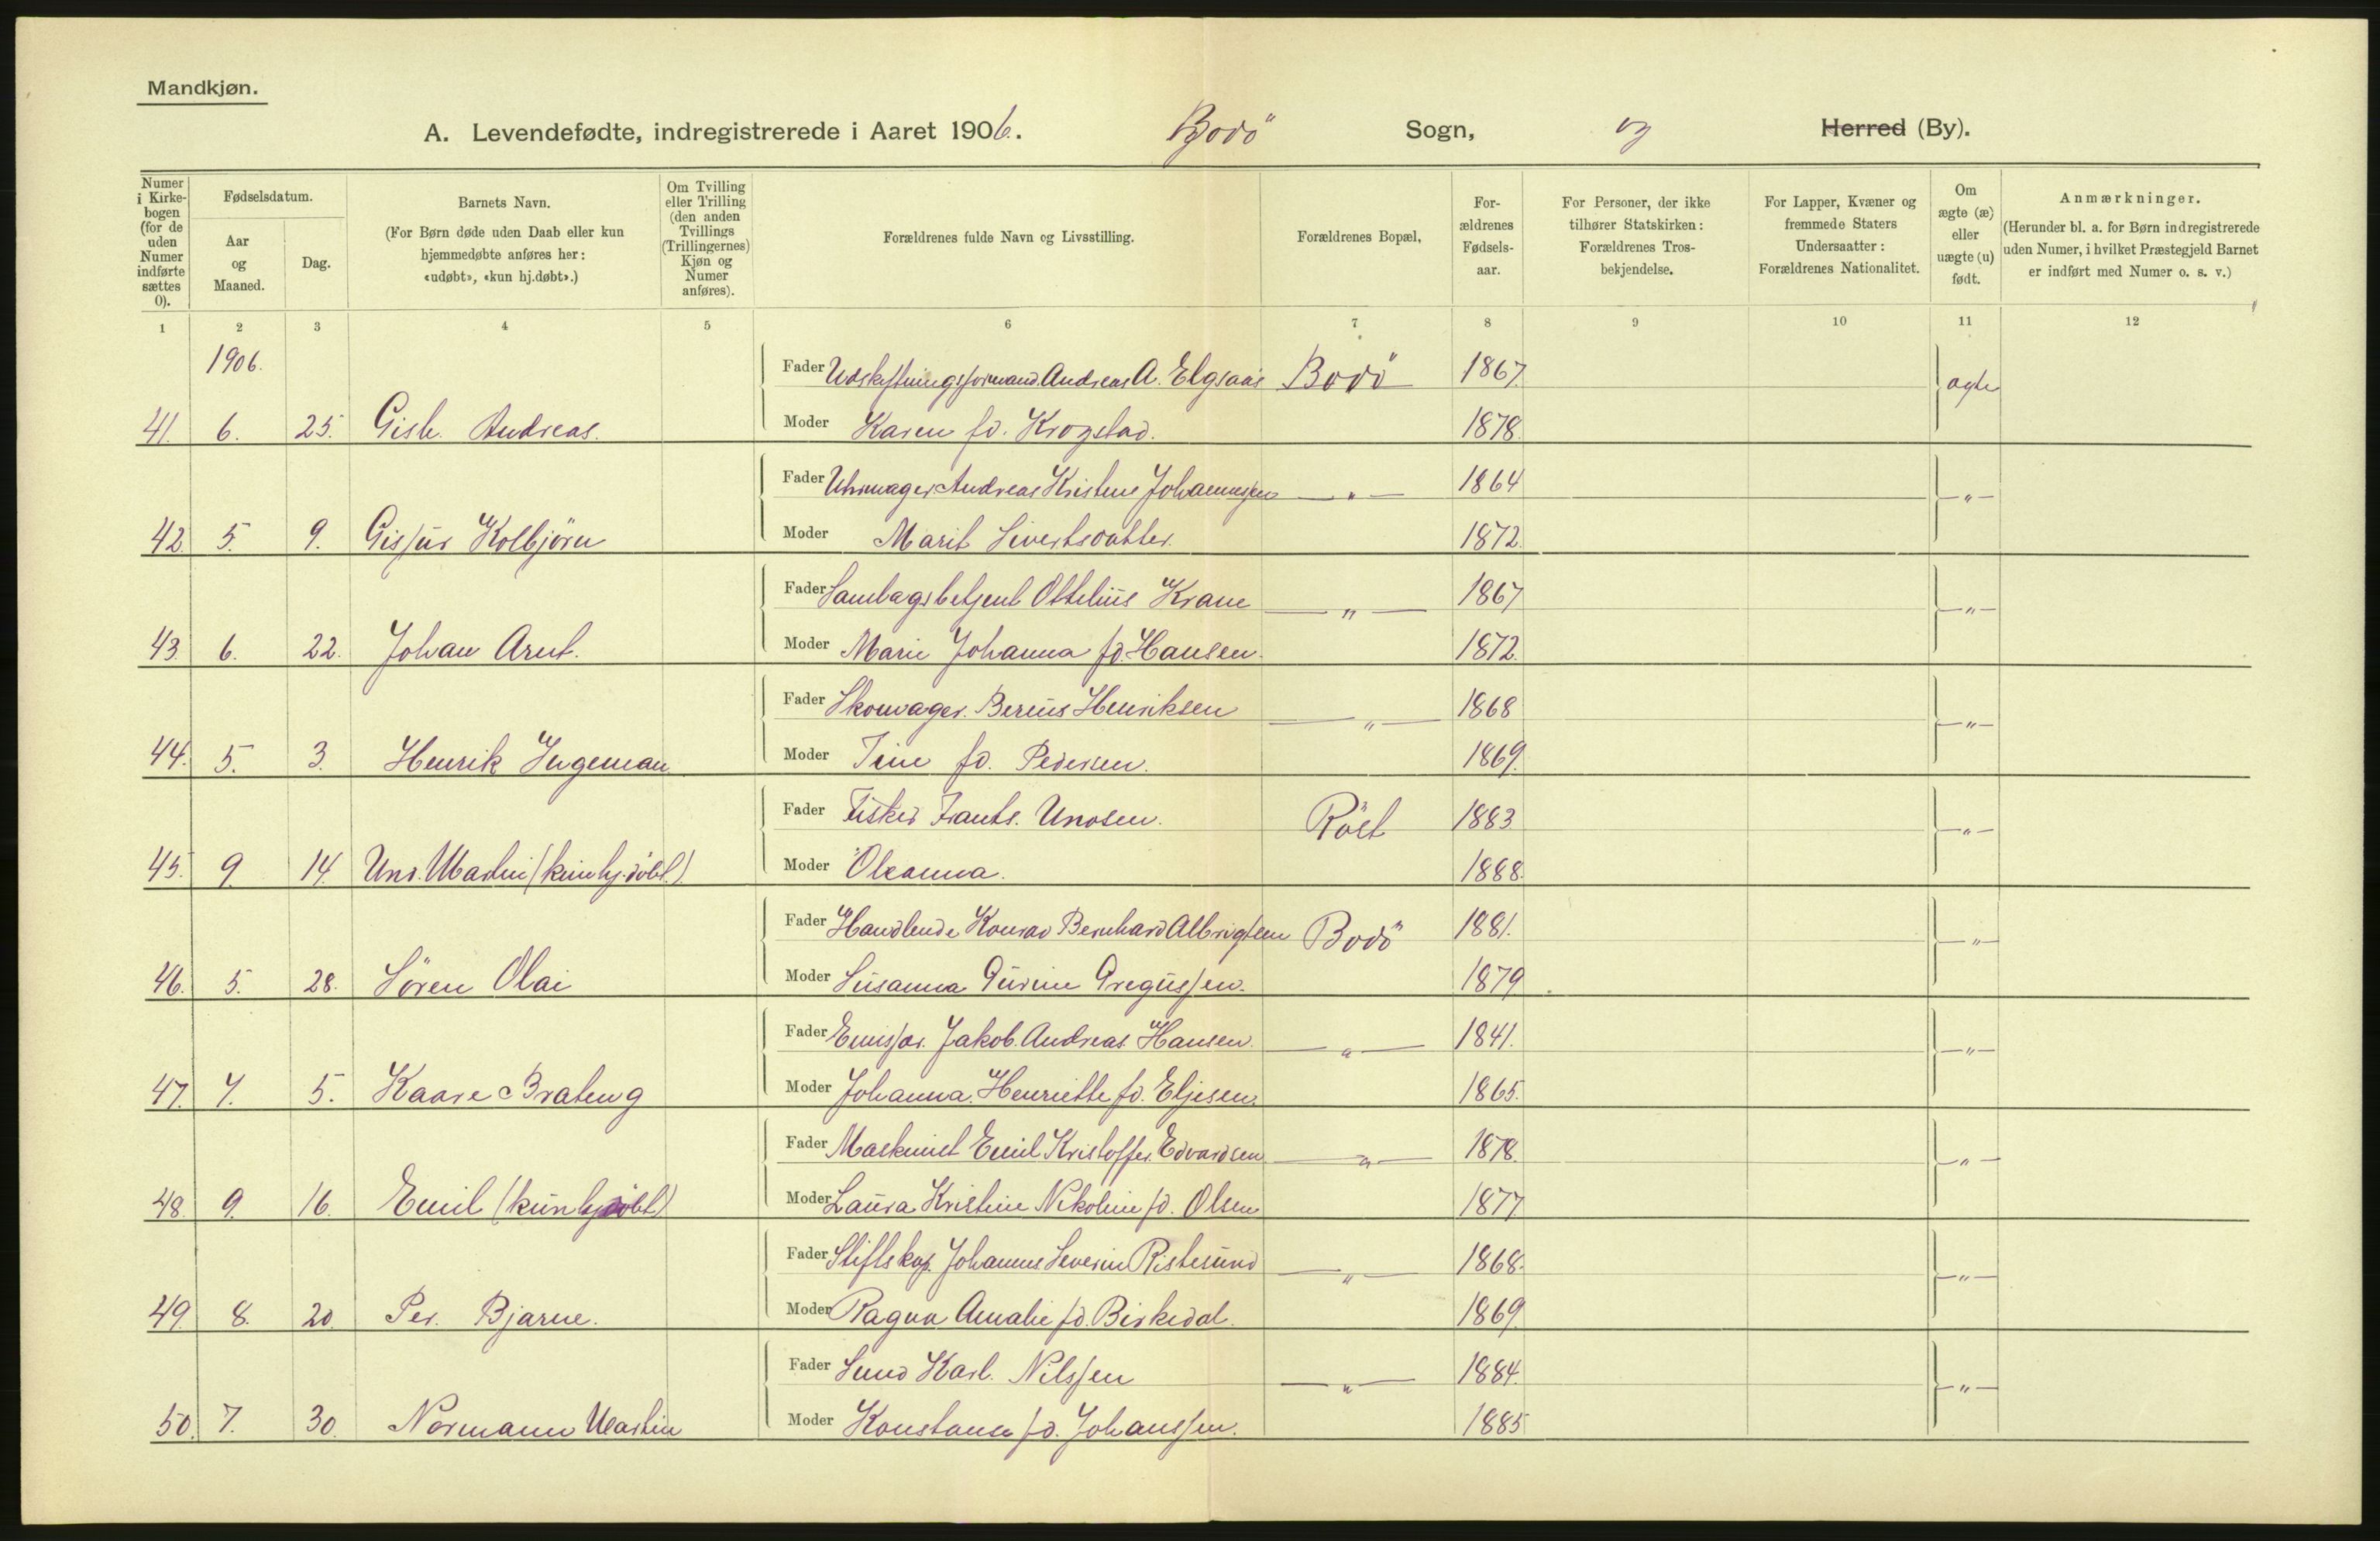 Mandkjøn.
A. Levendefødte, indregistrerede i Aaret 1906. Bodö Sogn, og Herred (By).
Numer i Kirkebogen (for de uden Numer indførte sættes 0).
Fødselsdatum.
Aar og Maaned.
Dag.
Barnets Navn.
(For Børn døde uden Daab eller kun hjemmedøbte anføres her: «udøbt», «kun hj.døbt».)
Om Tvilling eller Trilling (den anden Tvillings (Trillingernes) Kjøn og Numer anføres).
Forældrenes fulde Navn og Livsstilling.
Forældrenes Bopæl,
Forældrenes Fødselsaar.
For Personer, der ikke tilhører Statskirken: Forældrenes Trosbekjendelse.
For Lapper, Kvæner og fremmede Staters Undersaatter: Forældrenes Nationalitet.
Om ægte (æ) eller uægte (u) født.
Anmærkninger.
(Herunder bl. a. for Børn indregistrerede uden Numer, i hvilket Præstegjeld Barnet er indført med Numer o. s. v.)
1 2 3 4 5 6 7 8 9 10 11 12
1906.
Fader Udskiftningsformand Andreas A. Elgsaas Bodö 1867 ægte
41. 6. 25. Gisle Andreas. Moder Karen fd. Krogstad. 1878.
Fader Uhrmager Andreas Kristens Johannessen — " — 1864 — " —
42. 5. 9. Gissur Kolbjörn Moder Marit Sivertsdatter. 1872.
Fader Samlagsbetjent Ottelius Krane — " — 1867 — " —
43. 6. 22. Johan Arnt. Moder Marie Johanna fd. Hansen. 1872.
Fader Skomager. Bereus Henriksen — " — 1868 — " —
44. 5. 3. Henrik Ingeman Moder Tine fd. Pedersen. 1869.
Fader Fisker Frants. Unosen. Röst 1883 — " —
45. 9. 14. Uno. Martin (kun hj. döbt.) Moder Oleanna. 1888.
Fader Handlende Konrad Bernhard Albrigtsen Bodö 1881. — " —
46. 5. 28. Sören Olai Moder Susanna Gurine Gregussen. 1879
Fader Emissær. Jakob. Andreas Hansen. — " — 1841. — " —
47. 7. 5. Kaare Brateng Moder Johanna. Henriette fd. Eljesen. 1865.
Fader Maskinist Emil Kristoffer. Edvardsen — " — 1878. — " —
48. 9. 16. Emil (kun hj döbt) Moder Laura Kristine Nikoline fd. Olsen 1877.
Fader Stiftskap. Johannes Severin Ristesund — " — 1868. — " —
49. 8. 20. Per. Bjarne. Moder Ragna Amalie fd. Birkedal. 1869.
Fader Karl. Nilssen — " — 1884. — " —
50. 7. 30. Normann Martin Moder Konstanse fd. Johanssen. 1885